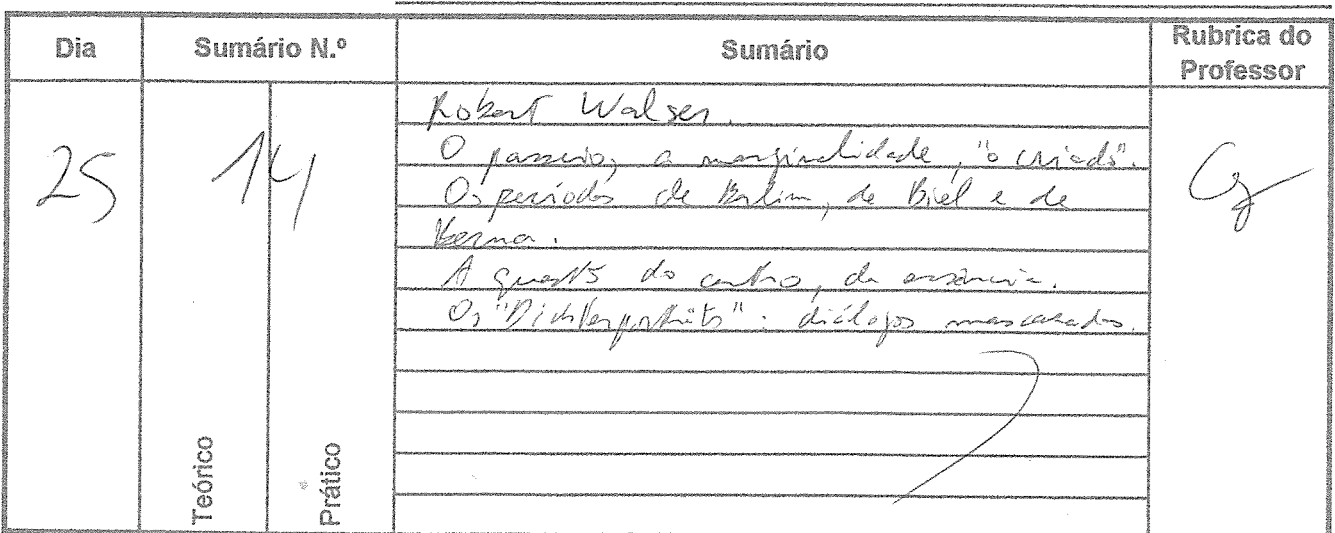 Dia
Sumário N.º
Sumário
Rubrica do
Professor
25
14
Robert Walser.
O passeio, a marginalidade, "o criado".
Os períodos de Berlim, de Biel e de
Berna.
A questão do centro, da essência.
Os "Dichterporträts": diálogos mascarados.
Teórico
Prático